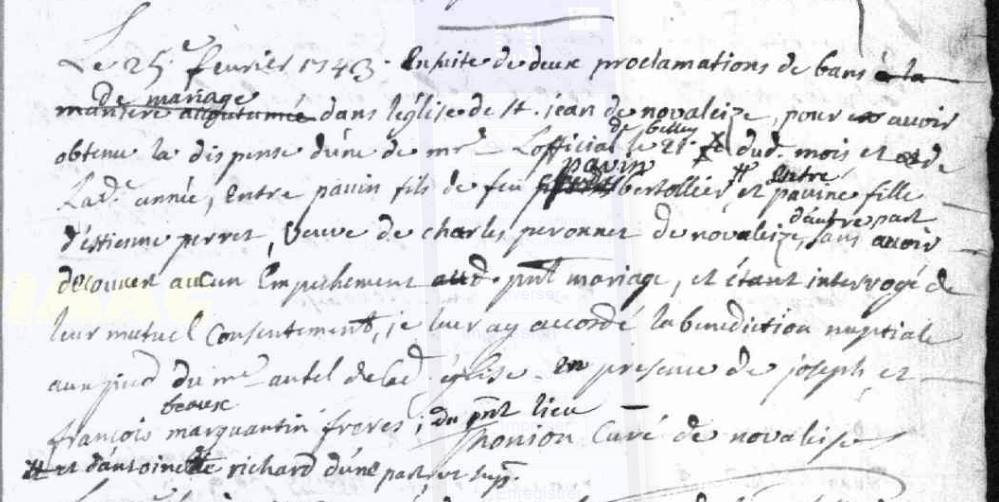 Le 25e. février 1743. Ensuite de deux proclamations de bans à la
de mariage
manière accoutumée dans l'église de st. jean de novaleize, pour en avoir
de belley
obtenu la dispense d'une de mr L'official le 21e dud. mois et de
pavin entre
Lade. année, Entre pavin fils de feu bertollier # et pavine fille
d'autre part
d'estienne perret, Veuve de charles peronnet de novaleize, sans avoir
decouvert aucun Empechement aud. pnt mariage, et étant interrogé de
leur mutuel Consentement, je leur ay accordé la benediction nuptiale
aux pied du me autel de lad. église en presence de joseph et
beaux
françois marquantin freres; du pnt lieu
Thonson Curé de novaleise
# et d'antoinette richard d'une part